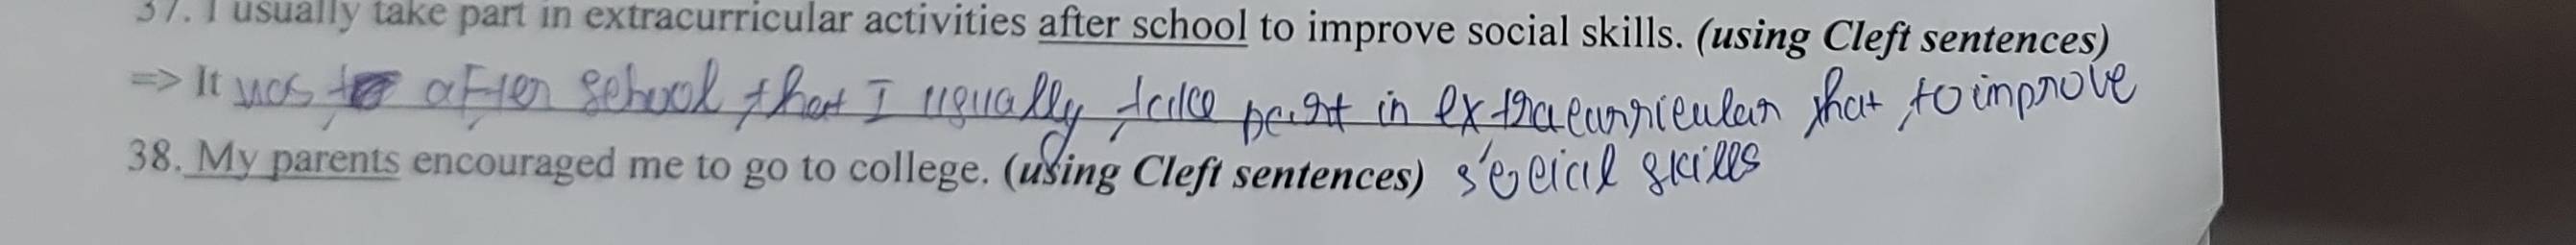 37. I usually take part in extracurricular activities after school to improve social skills. (using Cleft sentences)
=> It was after school that I usually take part in extracurricular that to improve
social skills
38. My parents encouraged me to go to college. (using Cleft sentences)